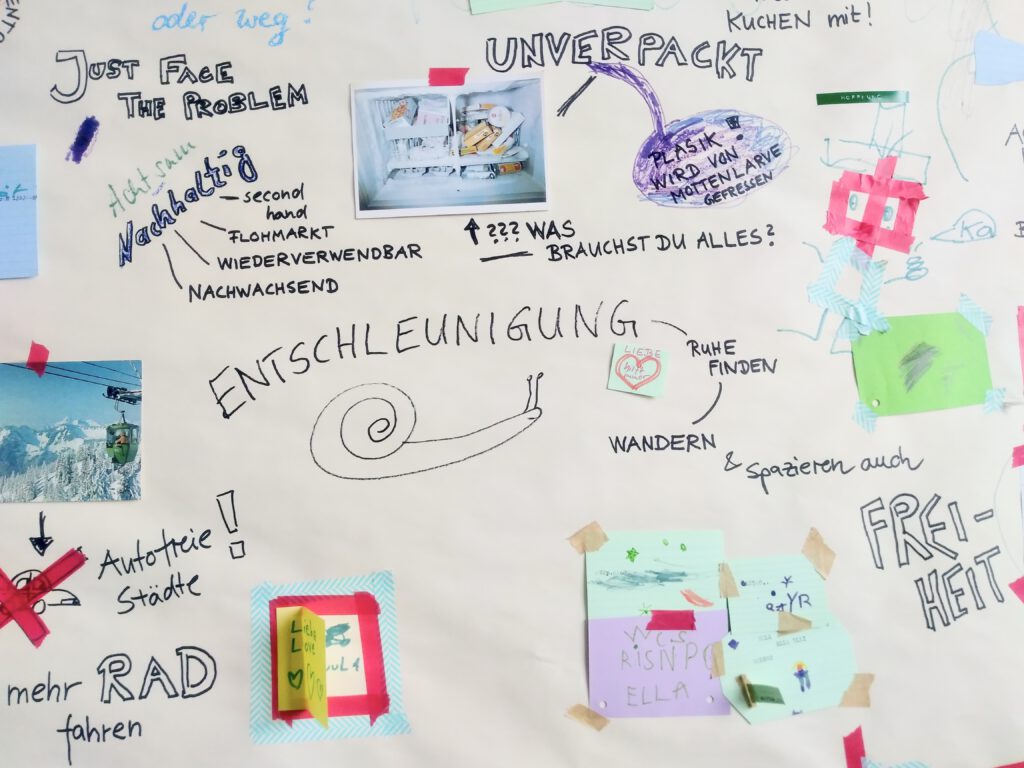 oder weg?
KUCHEN mit!
JUST FACE
THE PROBLEM
UNVERPACKT
PLASIK
WIRD VON
MOTTENLARVE
GEFRESSEN
!
Achtsam
Nachhaltig
second
hand
FLOHMARKT
WIEDERVERWENDBAR
NACHWACHSEND
??? WAS
BRAUCHST DU ALLES?
HOFFNUNG
Ka
ENTSCHLEUNIGUNG
LIEBE
hilft
immer
RUHE
FINDEN
WANDERN
& Spazieren auch
FREI-
HEIT
Autofreie
Städte
!
mehr RAD
fahren
Liebe
Love
RISNPO
ELLA